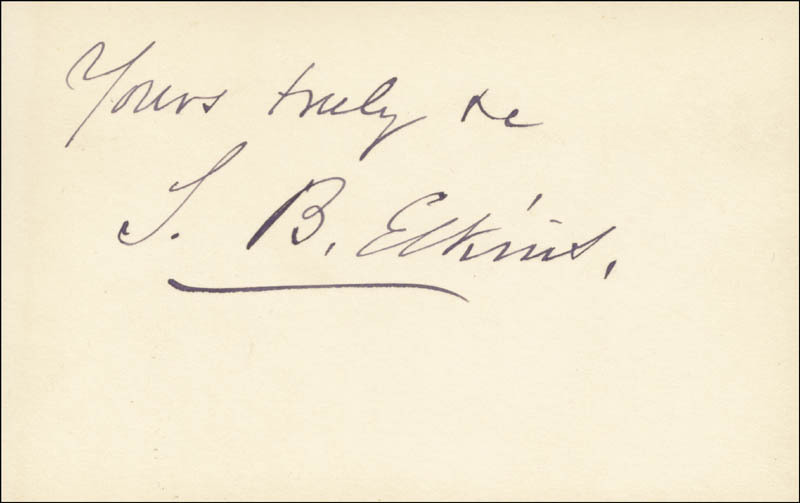 Yours truly &c
S. B. Elkins.